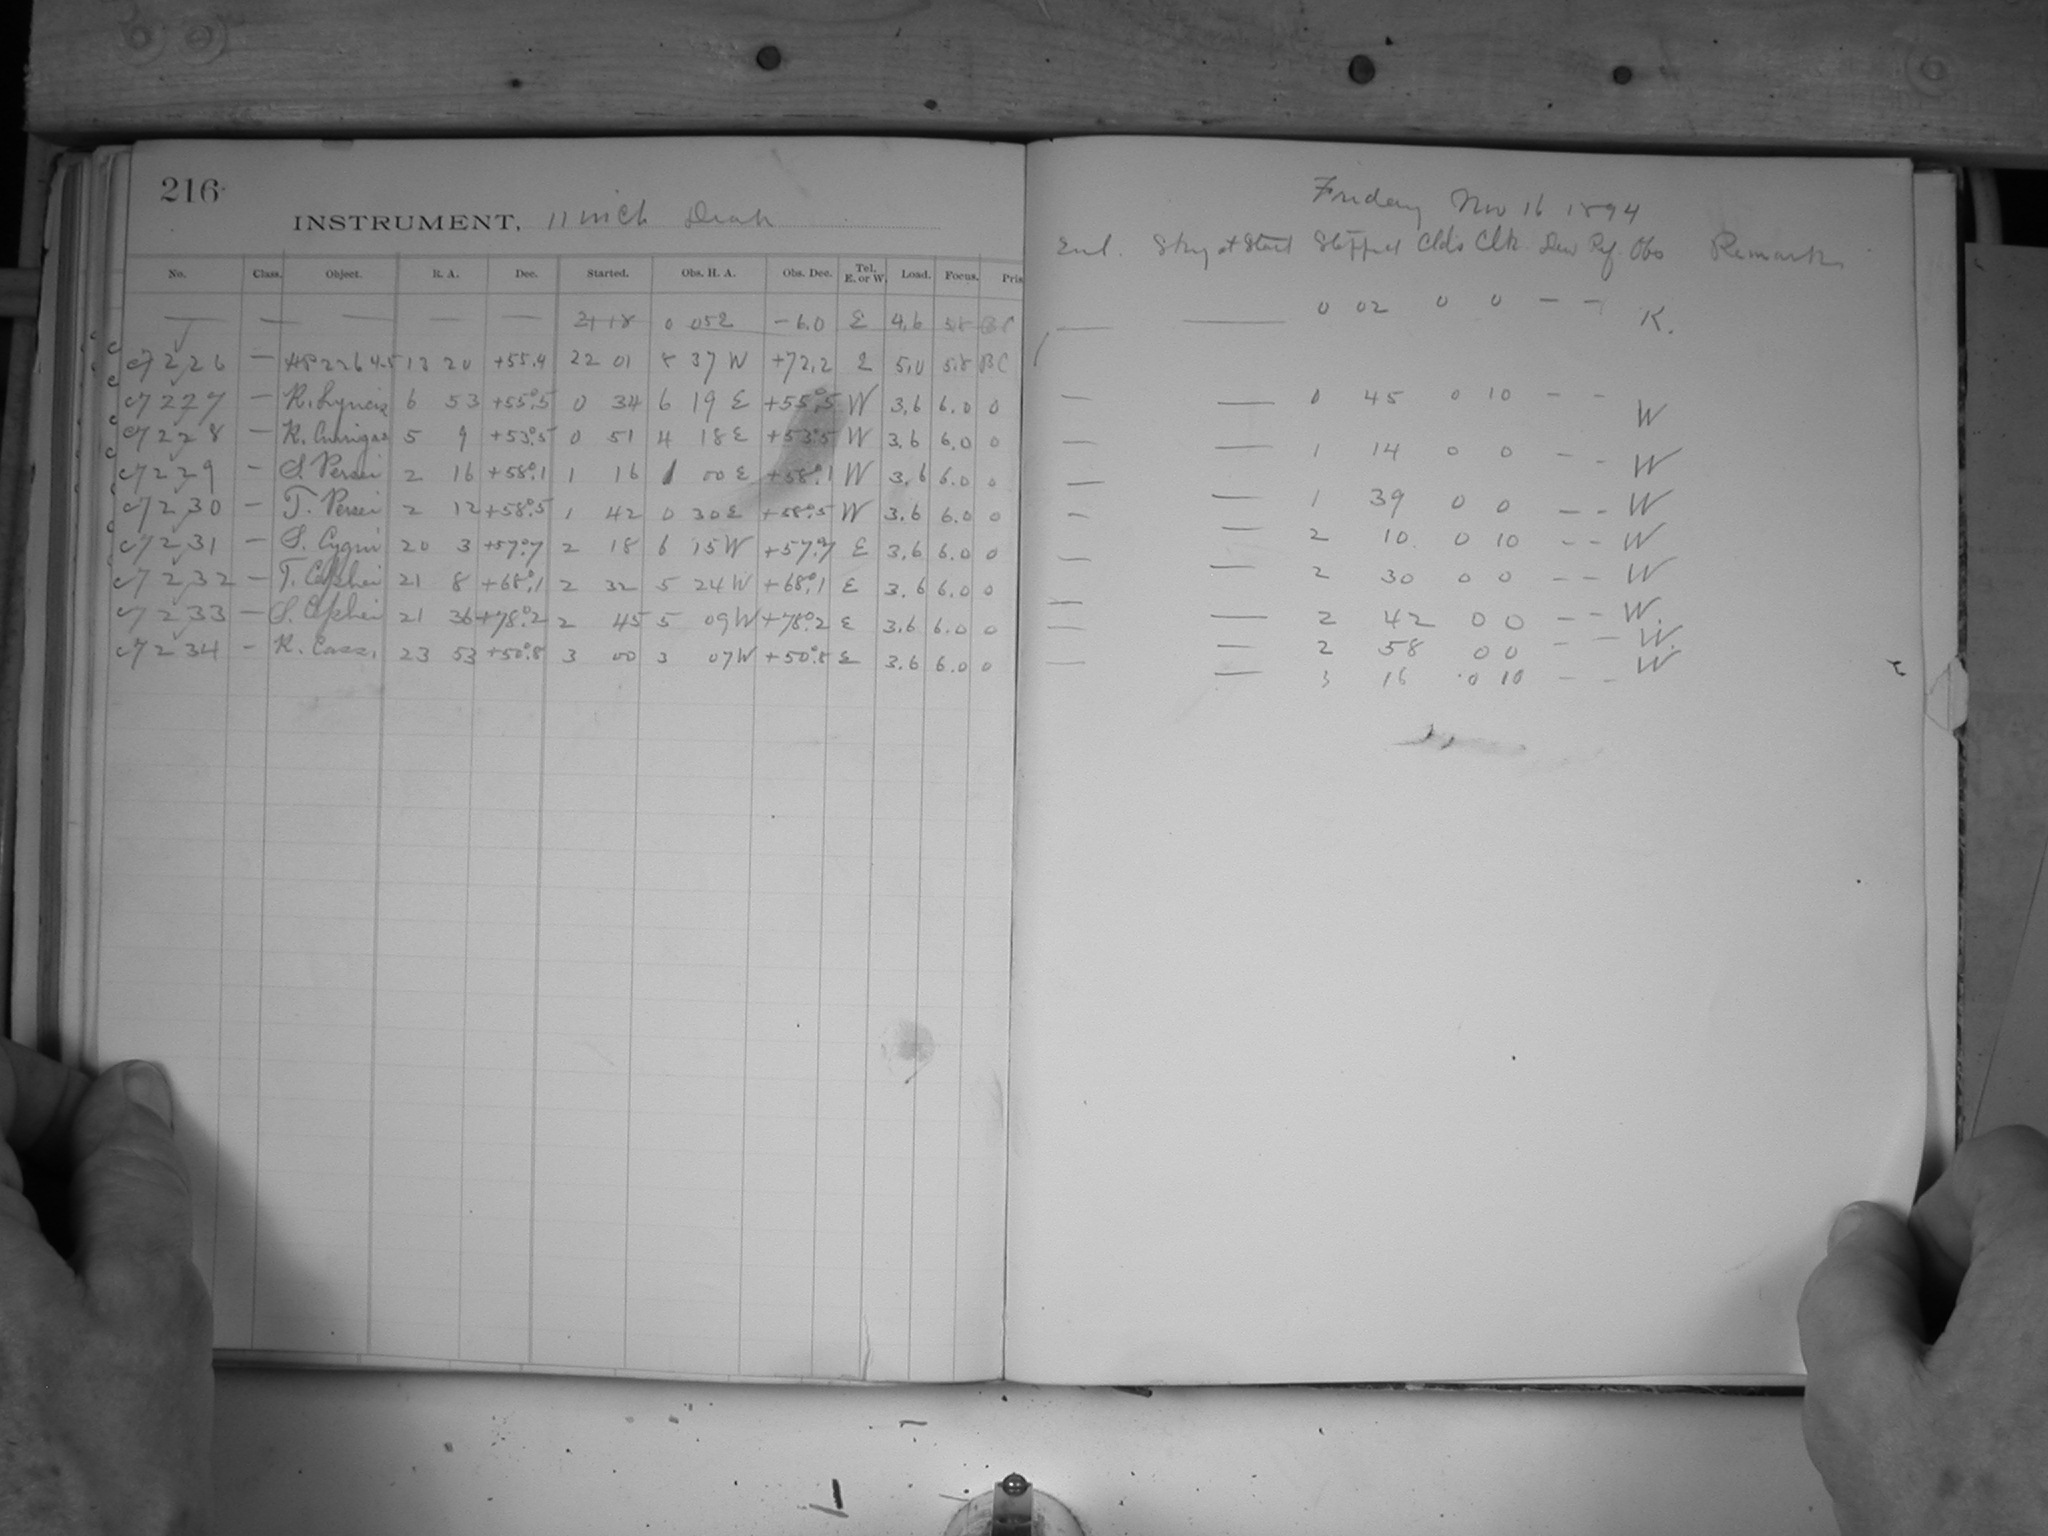 216
INSTRUMENT, 11 inch Drap
No. Class. Object. R. A. Dec. Started. Obs. H. A. Obs. Dec. Tel. E. or W. Load. Focus. Pris
— — — — — 21 18 0 05 E -6.0 E 4.6 5.8 BC
c7226 — 13 20 +55.9 22 01 8 37 W +72.2 E 5.0 5.8 BC
c7227 — R. Lyncis 6 53 +55°.5 0 34 6 19 E +55°.5 W 3.6 6.0 0
c7228 — R. Aurigae 5 9 +53°.5 0 51 4 18 E +53°.5 W 3.6 6.0 0
c7229 — S. Persei 2 16 +58°.1 1 16 1 00 E +58°.1 W 3.6 6.0 0
c7230 — T. Persei 2 12 +58°.5 1 42 0 30 E +58°.5 W 3.6 6.0 0
c7231 — S. Cygni 20 3 +57°.7 2 18 6 15 W +57°.7 E 3.6 6.0 0
c7232 — T. Cephei 21 8 +68°.1 2 32 5 24 W +68°.1 E 3.6 6.0 0
c7233 — S. Cephei 21 36 +78°.2 2 45 5 09 W +78°.2 E 3.6 6.0 0
c7234 — R. Cass. 23 53 +50°.8 3 00 3 07 W +50°.8 E 3.6 6.0 0
Friday Nov 16 1894
Enl. Sky at Start Stopped Clds Clk. Dew Ref. Obs Remarks
— — 0 02 0 0 — — K.
— — 0 45 0 10 — — W
— — 1 14 0 0 — — W
— — 1 39 0 0 — — W
— — 2 10 0 10 — — W
— — 2 30 0 0 — — W
— — 2 42 0 0 — — W.
— — 2 58 0 0 — — W.
— — 3 16 0 10 — — W